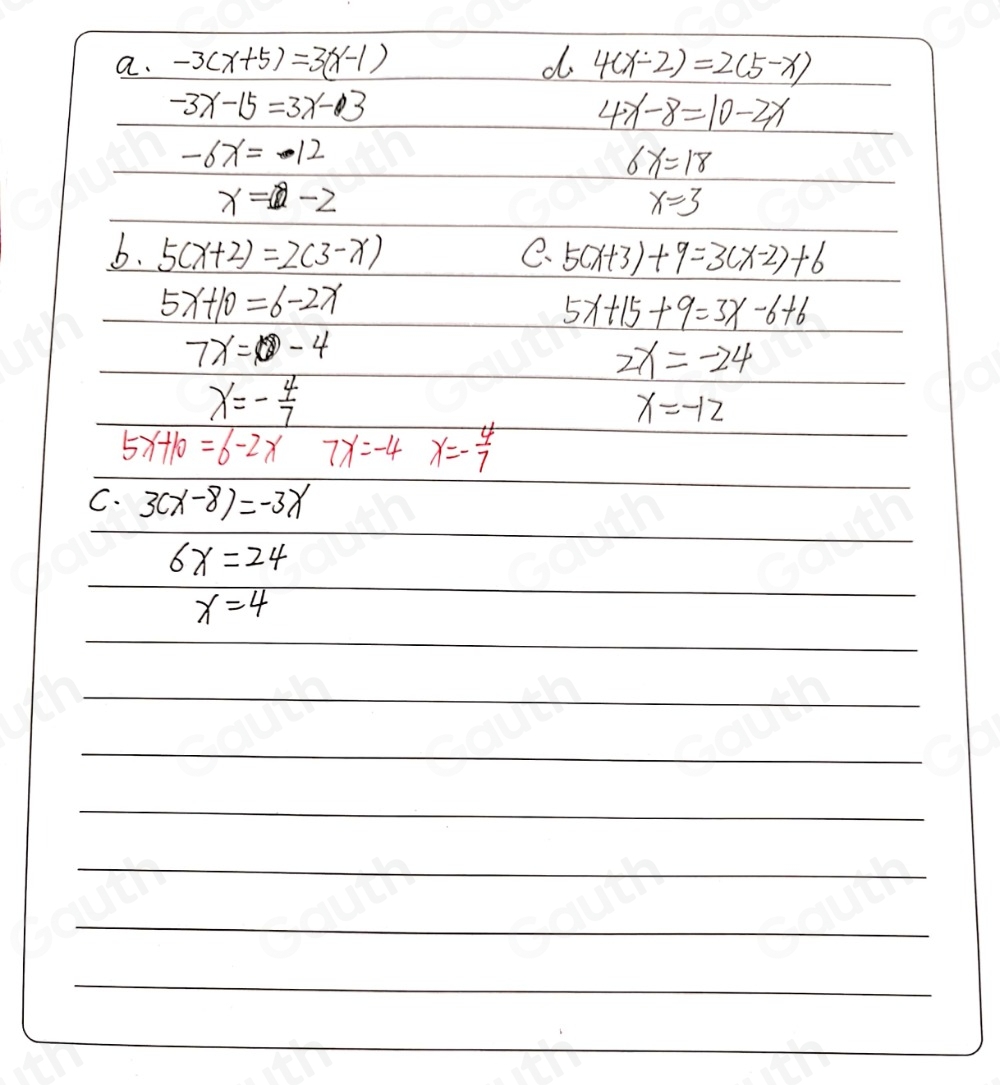 a. -3(x+5)=3(x-1)
-3x-15=3x-3
-6x=12
x=-2
b. 5(x+2)=2(3-x)
5x+10=6-2x
7x=-4
x=-4/7
5x+10=6-2x 7x=-4 x=-4/7
c. 3(x-8)=-3x
6x=24
x=4
d. 4(x-2)=2(5-x)
4x-8=10-2x
6x=18
x=3
e. 5(x+3)+9=3(x-2)+6
5x+15+9=3x-6+6
2x=-24
x=-12